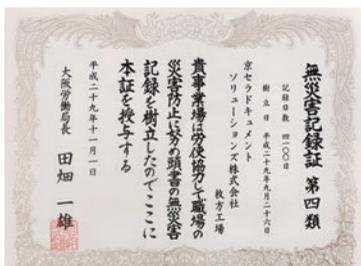 無災害記録証 第四類
記録日数 四一〇〇日
樹立日 平成二十九年九月二十六日
京セラドキュメント
ソリューションズ株式会社
枚方工場
貴事業場は労使協力して職場の
災害防止に努め頭書の無災害
記録を樹立したのでここに
本証を授与する
平成二十九年十一月一日
大阪労働局長 田畑一雄